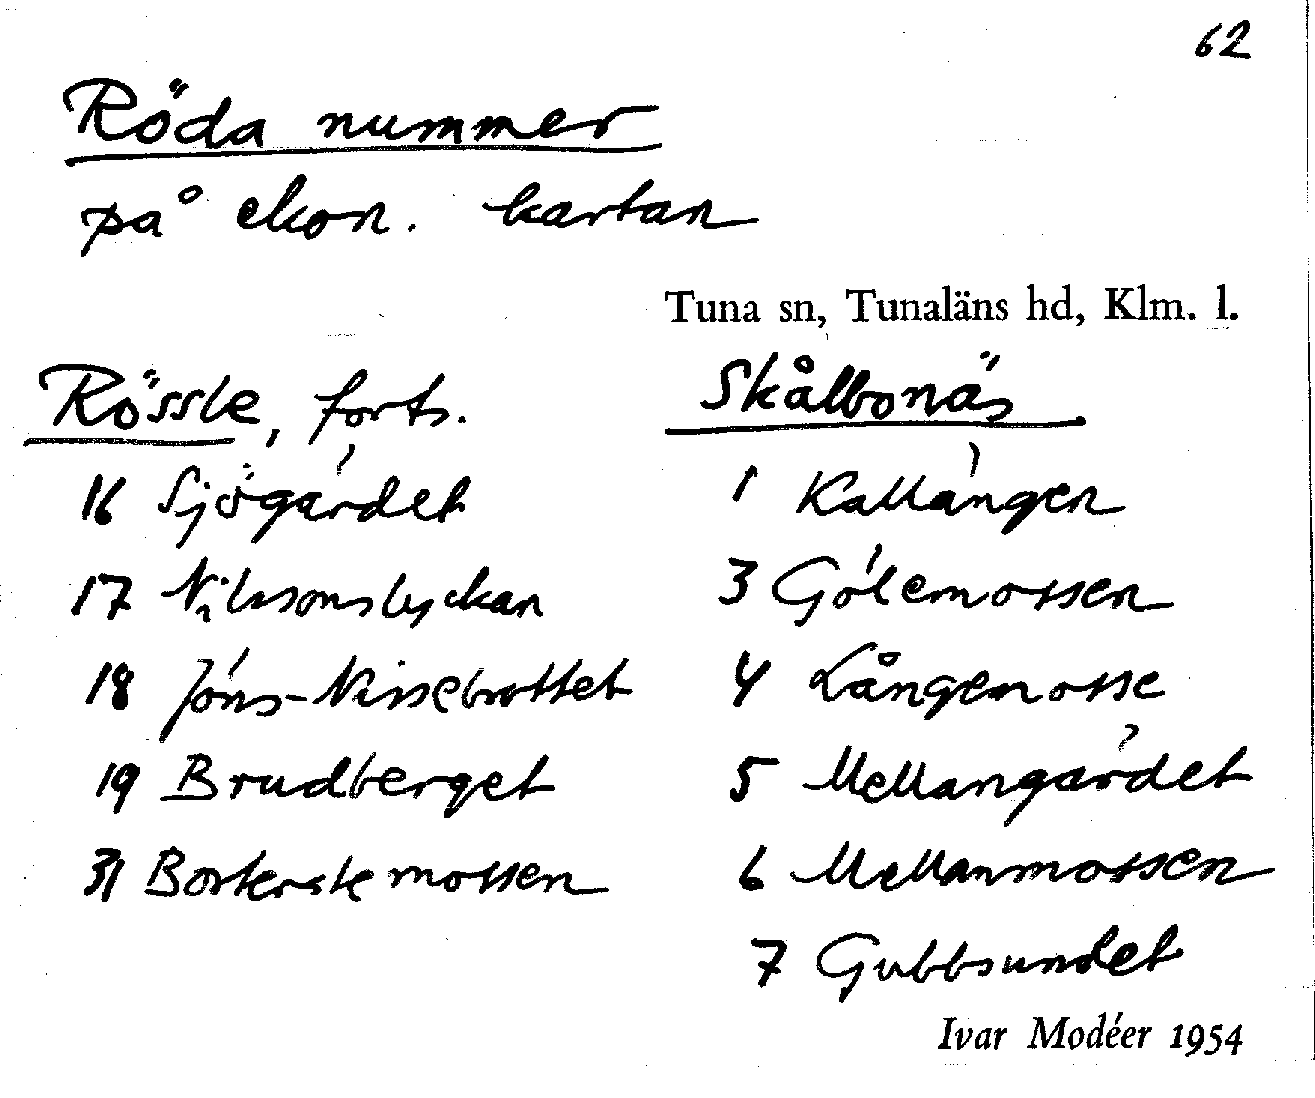 62
Röda nummer
på ekon. kartan
Tuna sn, Tunaläns hd, Klm. l.
Rössle, forts.
16 Sjögärdet
17 Nilssonslyckan
18 Jöns-Nissebrottet
19 Brudberget
31 Borkerslemossen
Skålbonäs
1 Kallängen
3 Gölemossen
4 Långemosse
5 Mellangärdet
6 Mellanmossen
7 Gubbsundet
Ivar Modéer 1954